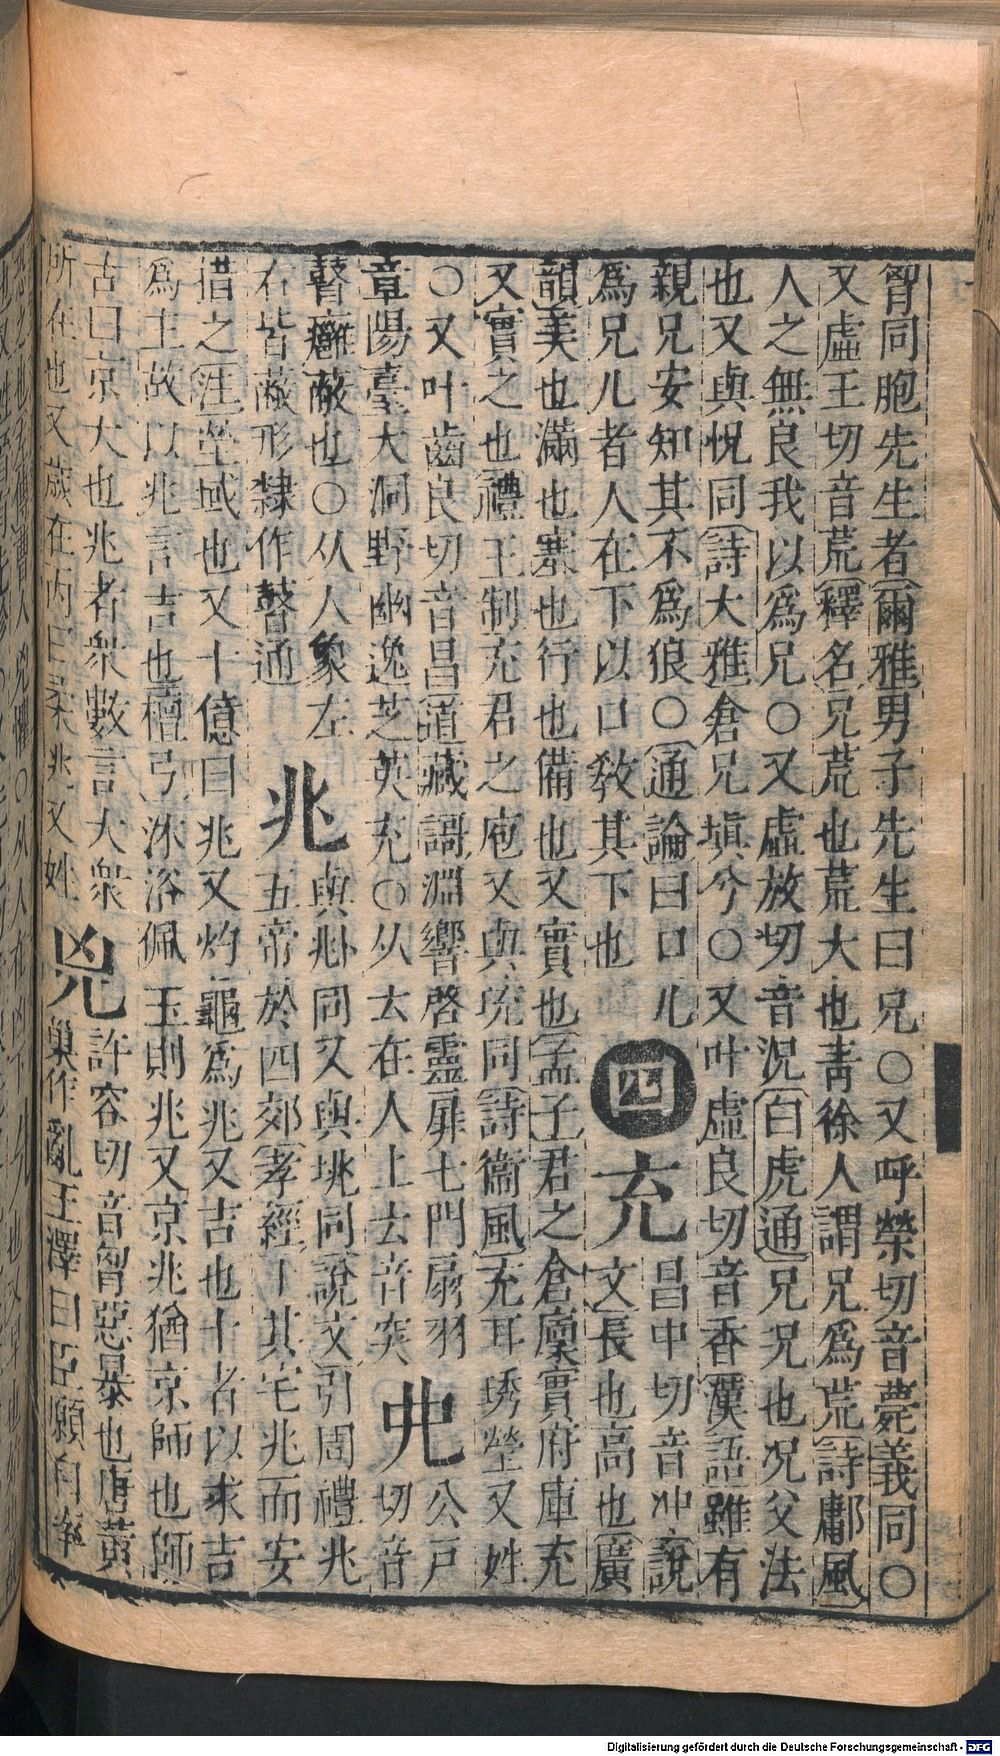 胷同胞先生者爾雅男子先生曰兄○又呼榮切音薨義同○
又虛王切音荒釋名兄荒也荒大也青徐人謂兄爲荒詩鄘風
人之無良我以爲兄○又虛放切音況白虎通兄況也況父法
也又與怳同詩大雅倉兄塡兮○又叶虛良切音香漢語雖有
親兄安知其不爲狼○通論曰口儿
爲兄儿者人在下以口敎其下也
四
充
昌中切音冲說
文長也高也廣
韻美也滿也塞也行也備也又實也孟子君之倉廩實府庫充
又實之也禮王制充君之庖又與珫同詩衞風充耳琇瑩又姓
○又叶齒良切音昌道藏謌淵響啓靈扉七門扇羽
章陽臺大洞野幽逸芝英充○从𠫓在人上𠫓音突
𠑹
公戸
切音
瞽廱蔽也○从人象左
右皆蔽形隸作瞽通
兆
與𠧞同又與垗同說文引周禮兆
五帝於四郊孝經卜其宅兆而安
措之注塋域也又十億曰兆又灼龜爲兆又吉也卜者以求吉
爲主故以兆言吉也檀弓沐浴佩玉則兆又京兆猶京師也師
古曰京大也兆者衆數言大衆
所在也又歲在丙曰柔兆又姓
兇
許容切音匈惡暴也唐黃
巢作亂王澤曰臣願自率
Digitalisierung gefördert durch die Deutsche Forschungsgemeinschaft - DFG